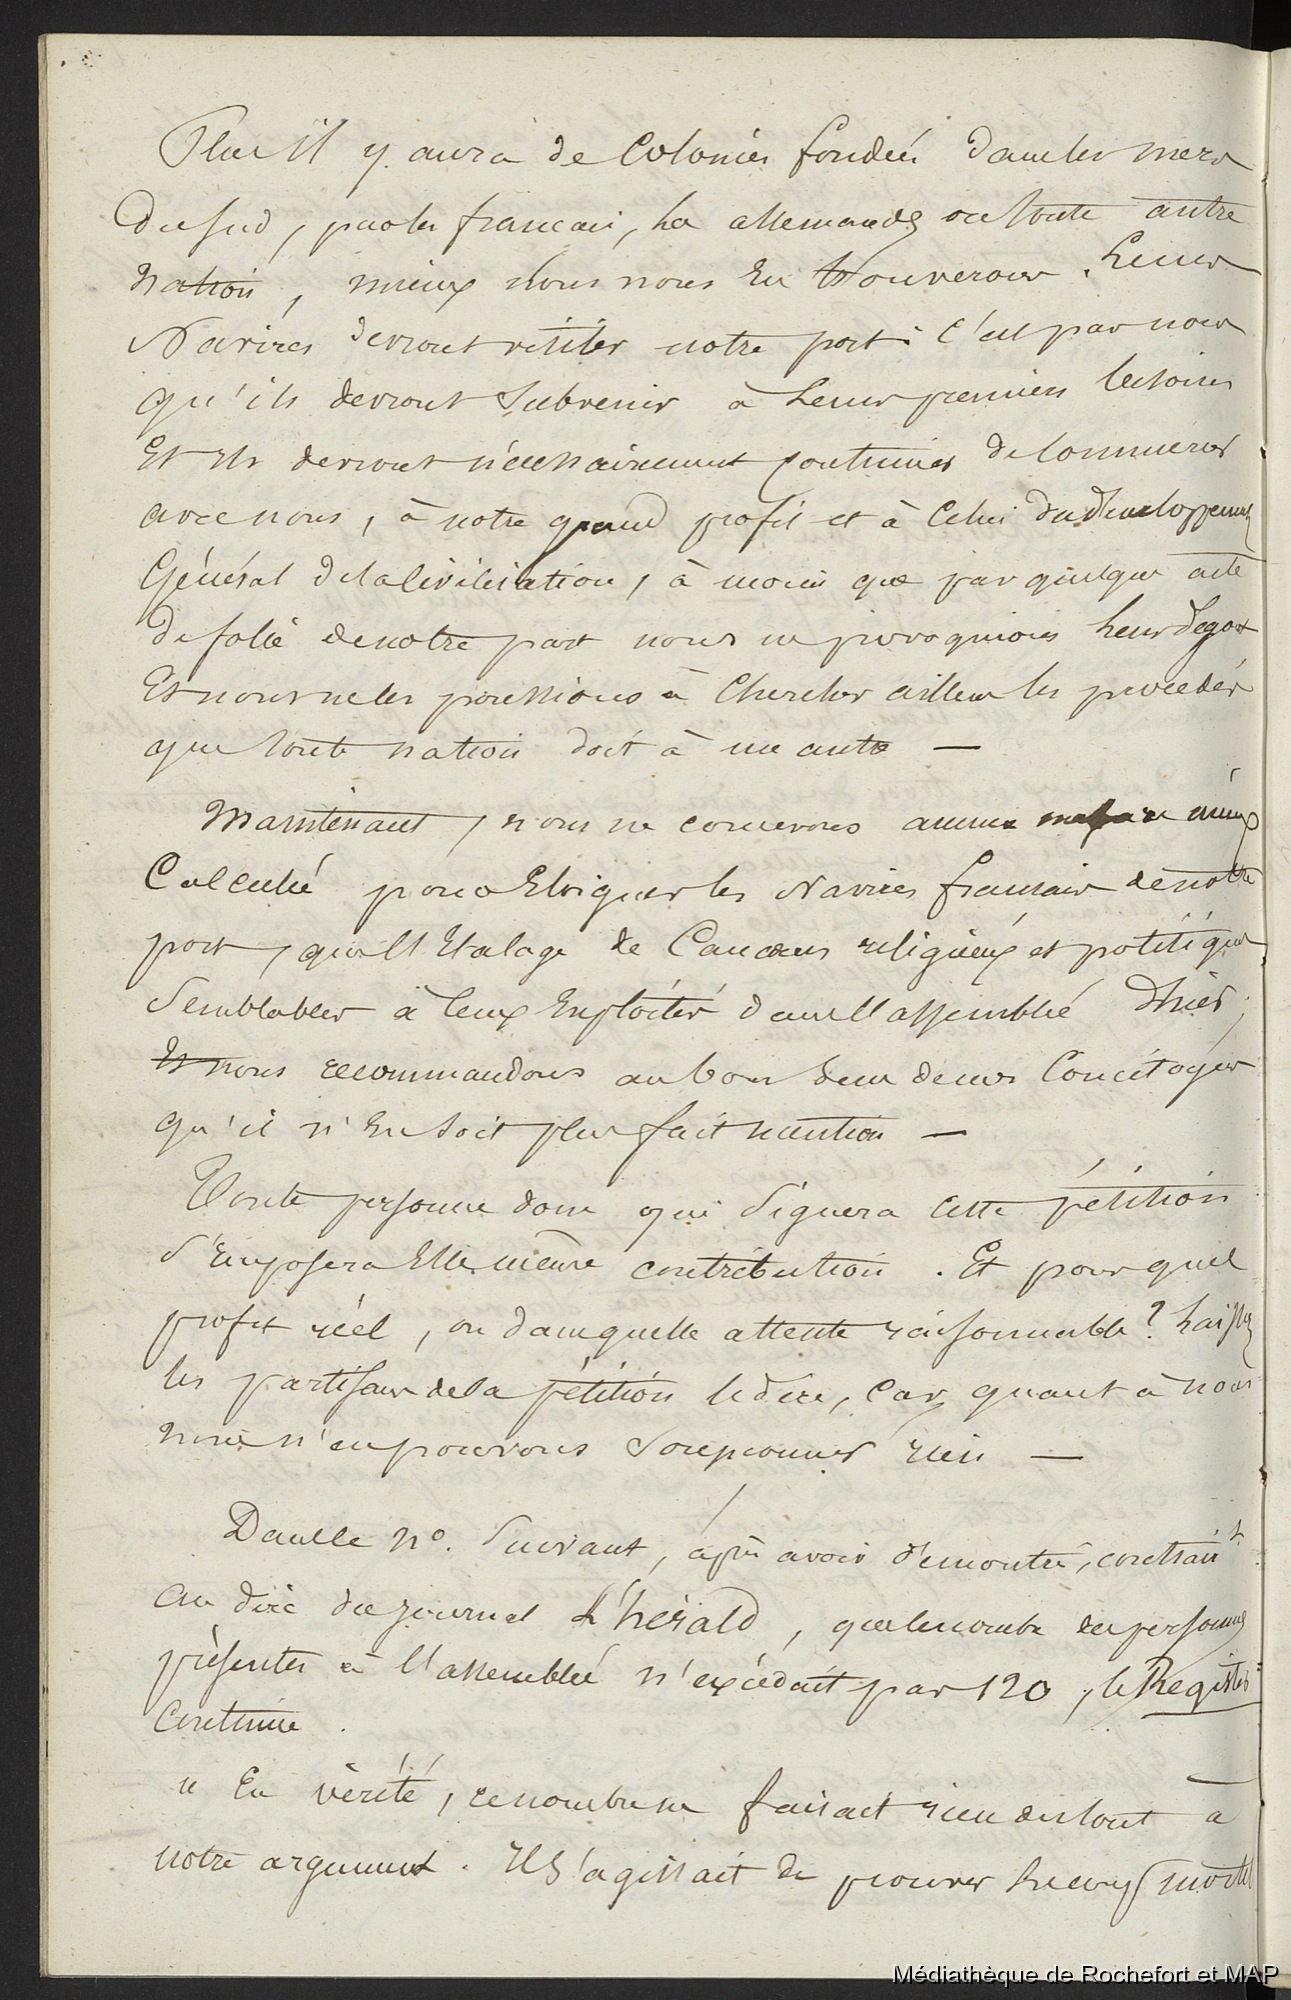 Plus il y aura de Colonies fondées dans les mers
du sud, par les français, les allemands ou toute autre
nation, mieux nous nous en trouverons. Leurs
Navires devront visiter notre port : c'est par nous
qu'ils devront subvenir à leurs premiers besoins
Et ils devront nécessairement continuer de commercer
avec nous, à notre grand profit et à celui du développemt
Général de la civilisation, à moins que par quelque acte
de folie de notre part nous ne provoquions leur dégout
Et nous ne les poussions à chercher ailleurs les procédés
que toute nation doit à une autre —
Maintenant, nous ne concevons aucune mieux
Calculé pour Eloigner les Navires français de notre
port, que l'Etalage de Cancans religieux et politiques
Semblables à ceux Exploités dans l'assemblée d'hier,
Et nous recommandons au bon sens de nos Concitoyens
qu'il n'en soit plus fait mention —
Toute personne donc qui signera cette pétition
s'imposera Elle même contribution. Et pour quel
profit réel, ou dans quelle attente raisonnable ? Laissez
les partisans de la pétition le dire, car, quant à nous
nous n'en pouvons soupçonner rien —
Dans le No. Suivant, après avoir démontré, contrairt
au dire du journal L'hérald, que le nombre des personnes
présentes à l'assemblée n'excédait pas 120, le Register
Continue .
" En vérité, ce nombre ne faisait rien du tout à
notre argument. Il s'agissait de prouver